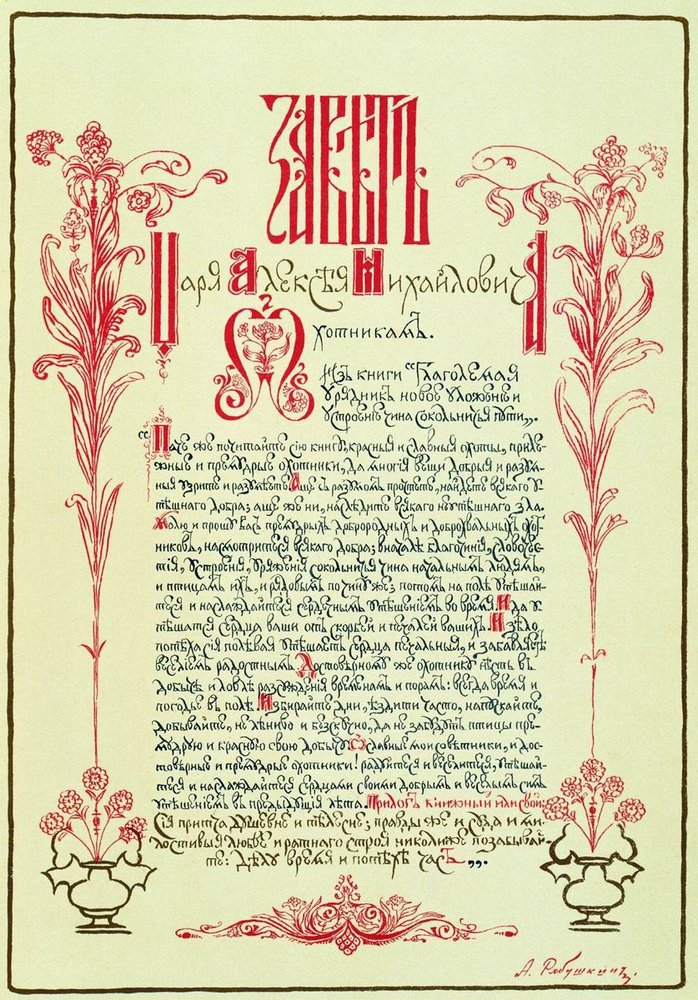 Завѣтъ
Царя Алексѣя Михайловича
Охотникамъ.
Изъ книги "Глаголемая
урядникъ новое уложеніе и
устроеніе чина сокольничья пути„.
"Паче же почитайте сію книгу, красныя и славныя охоты, приле-
жныя и премудрыя охотники, да многія вещи добрыя и разум-
ныя узрите и разумѣете. Аще съ разумомъ прочтете, найдете всякаго у-
тѣшнаго добра; аще же ни, наслѣдите всякаго неутѣшнаго зла.
Молю и прошу васъ премудрыхъ доброродныхъ и доброхвальныхъ охот-
никовъ, насмотритеся всякаго добра; вначалѣ благочинія, славочес-
тія, устроенія, уряженія сокольничья чина начальнымъ людямъ,
и птицамъ ихъ, и рядовымъ по чину же; потомъ на полѣ утѣшай-
теся и наслаждайтеся сердечнымъ утѣшеніемъ во время. И да у-
тѣшатся сердца ваши отъ скорбей и печалей вашихъ. И зѣло
потѣха сія полевая утѣшаетъ сердца печальныя, и забавляетъ
веселіемъ радостнымъ. Достовѣрному же охотнику нѣсть въ
добычѣ и ловлѣ разсужденія временамъ и порамъ: всегда время и
погодье въ полѣ. Избирайте дни, ѣздите часто, напускайте,
добывайте, не лѣниво и безскучно, да не забудутъ птицы пре-
мудрую и красную свою добычу. О славные мои совѣтники, и дос-
товѣрные и премудрые охотники! радуйтеся и веселитеся, утѣшай-
теся и наслаждайтеся сердцами своими добрымъ и веселымъ симъ
утѣшеніемъ въ предыдущія лѣта. Прилогъ книжный или свой:
Сія притча душевне и тѣлесне; правды же и суда и ми-
лостивыя любве и ратнаго строя николиже позабывай-
те: дѣлу время и потѣхѣ часъ„.
А. Рябушкинъ